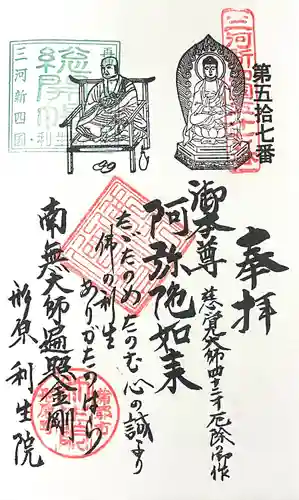 第五拾七番
奉拝
御本尊
慈覚大師四十二才厄除の御作
阿弥陀如来
たゞたのめたのむ心の誠より
佛の利生
ありがたのはら
南無大師遍照金剛
形原 利生院
三河新四国
総開帳
利生
蒲郡市